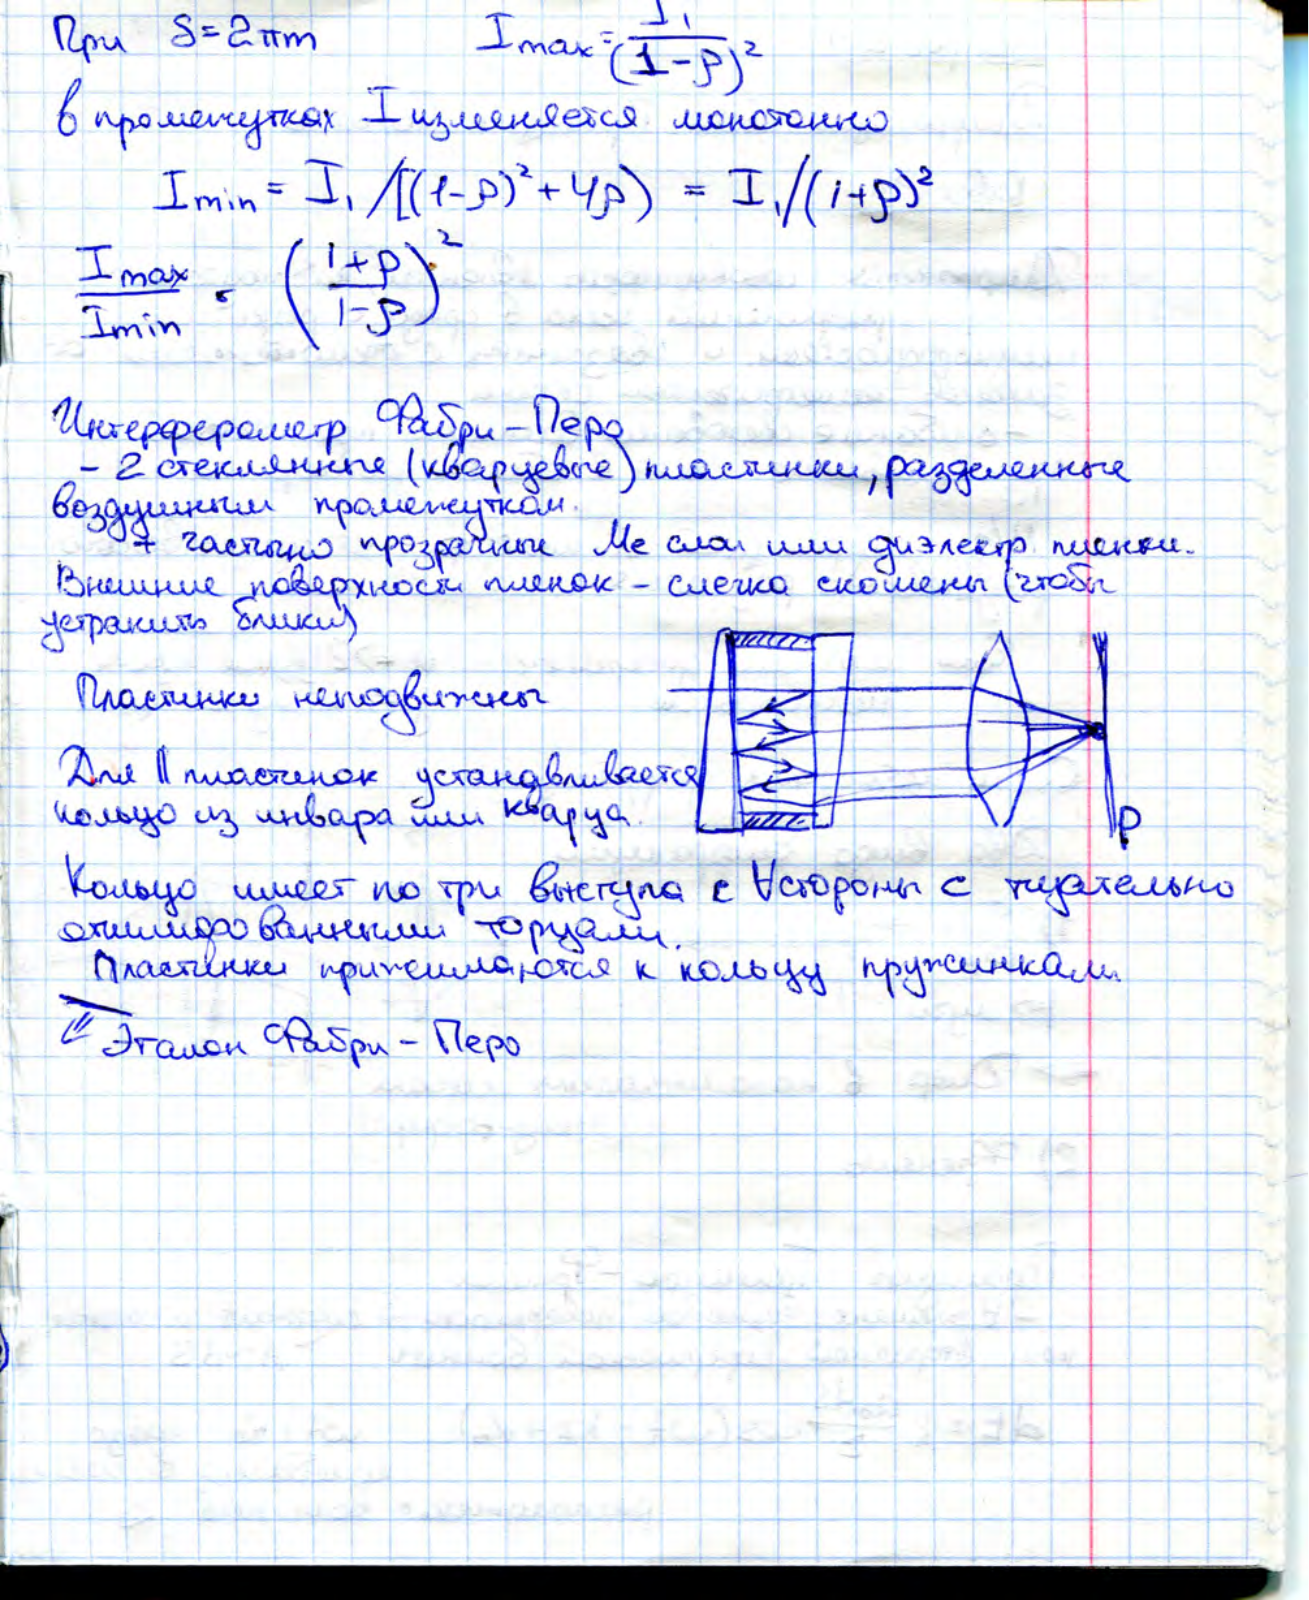 При δ=2πm   I max = I₁/(1-ρ)²
в промежутках I изменяется монотонно
I min = I₁/[(1-ρ)²+4ρ) = I₁/(1+ρ)²
I max / I min = ((1+ρ)/(1-ρ))²
Интерферометр Фабри-Перо
- 2 стеклянные (кварцевые) пластинки, разделенные
воздушным промежутком.
+ частично прозрачные Ме слои или диэлектр. пленки.
Внешние поверхности пленок - слегка скошены (чтобы
устранить блики)
Пластинки неподвижны
Для || пластинок устанавливается
кольцо из инвара или кварца.
P
Кольцо имеет по три выступа с ∀ стороны с тщательно
отшлифованными торцами.
Пластинки прижимаются к кольцу пружинками.
Эталон Фабри-Перо